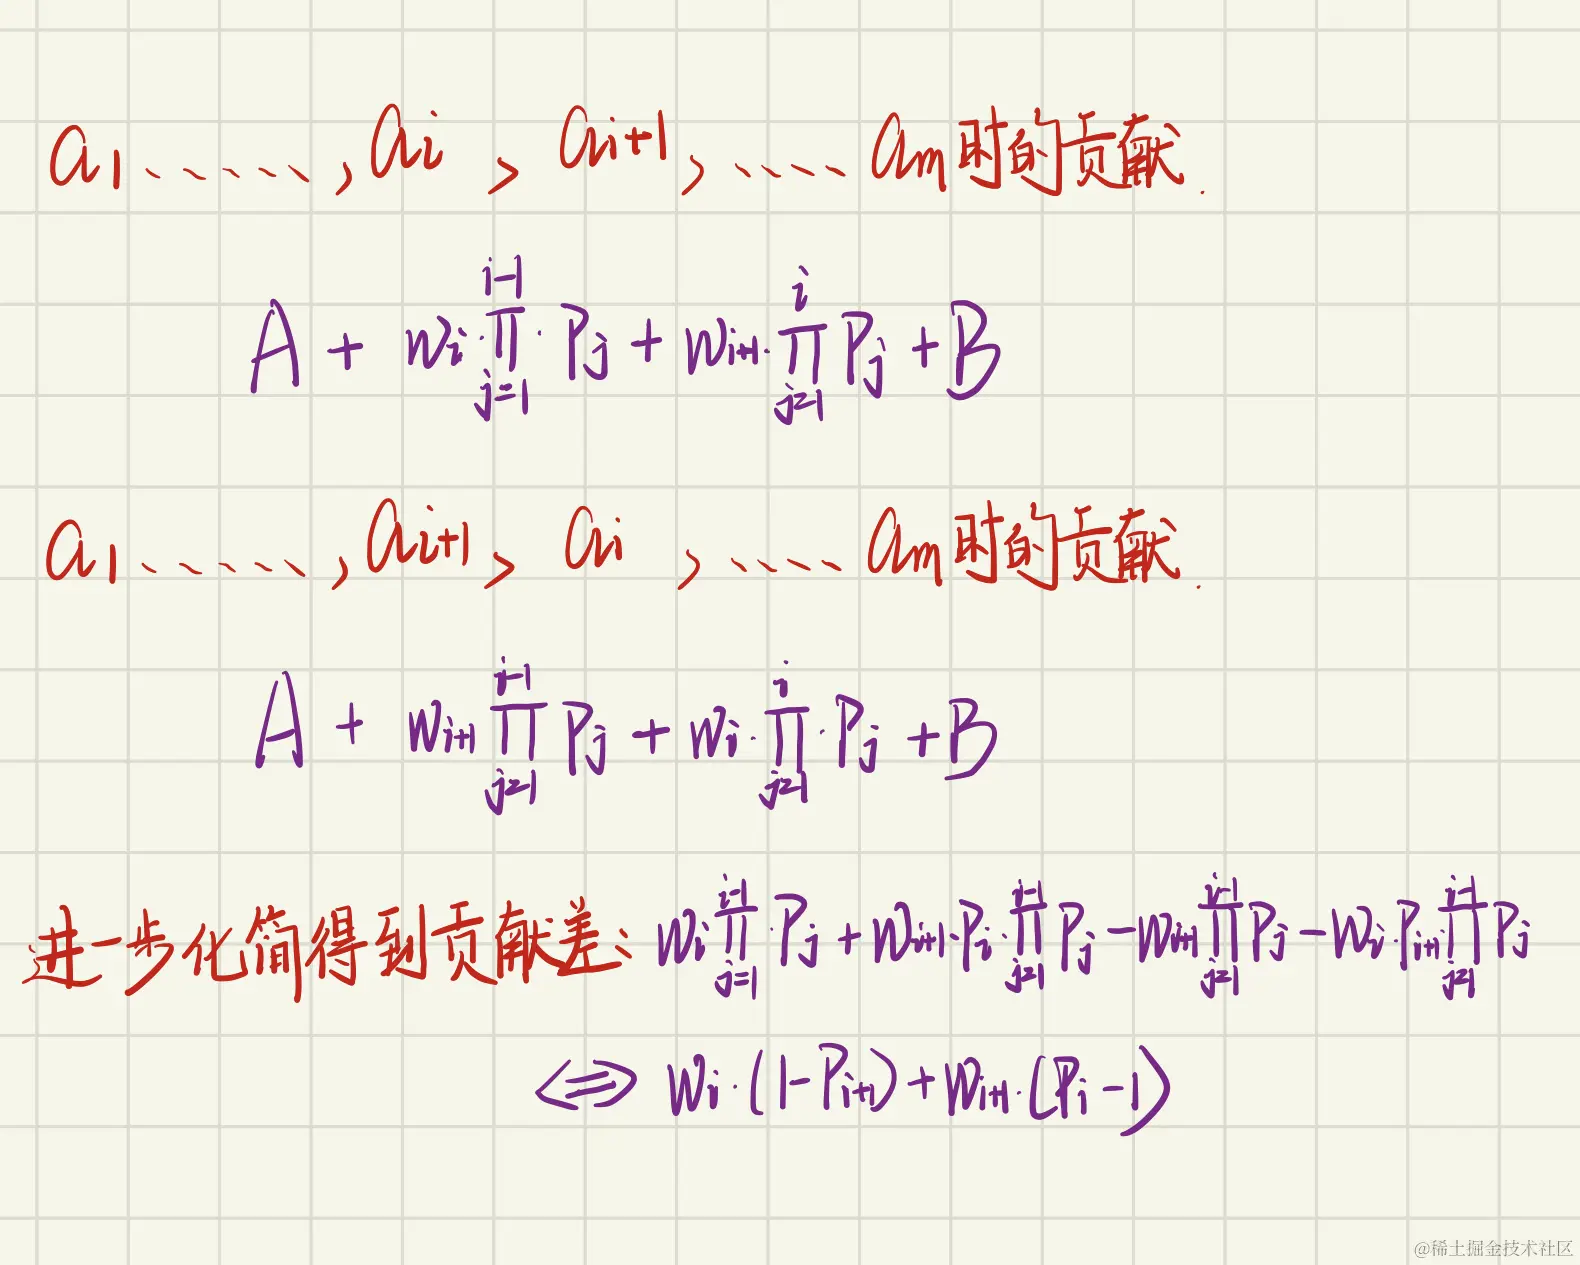 a₁ ......, aᵢ , aᵢ₊₁, ..... aₘ时的贡献.
A + wᵢ · ∏_{j=1}^{i-1} · Pⱼ + wᵢ₊₁ · ∏_{j=1}^{i} Pⱼ + B
a₁ ......, aᵢ₊₁, aᵢ , ..... aₘ时的贡献.
A + wᵢ₊₁ ∏_{j=1}^{i-1} Pⱼ + wᵢ · ∏_{j=1}^{i} · Pⱼ + B
进一步化简得到贡献差: wᵢ ∏_{j=1}^{i-1} · Pⱼ + wᵢ₊₁ · Pᵢ · ∏_{j=1}^{i-1} Pⱼ - wᵢ₊₁ ∏_{j=1}^{i-1} Pⱼ - wᵢ · Pᵢ₊₁ ∏_{j=1}^{i-1} Pⱼ
⟺ wᵢ · (1 - Pᵢ₊₁) + wᵢ₊₁ · (Pᵢ - 1)
@稀土掘金技术社区